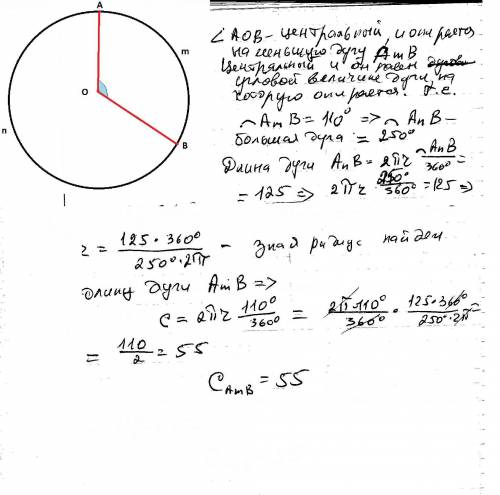 A
m
O
B
n
∠AOB - центральный, и опирается
на меньшую дугу AmB
Центральный и он равен
угловой величине дуги, на
которую опирается. Т.е.
◠AmB = 110° => ◠AnB -
большая дуга = 250°
Длина дуги AnB = 2πr · ◠AnB / 360° =
= 125 => 2πr · 250° / 360° = 125 =>
r = 125 · 360° / 250° · 2π - зная радиус найдем
длину дуги AmB =>
C = 2πr 110° / 360° = 2π · 110° / 360° · 125 · 360° / 250° · 2π =
= 110 / 2 = 55
C AmB = 55